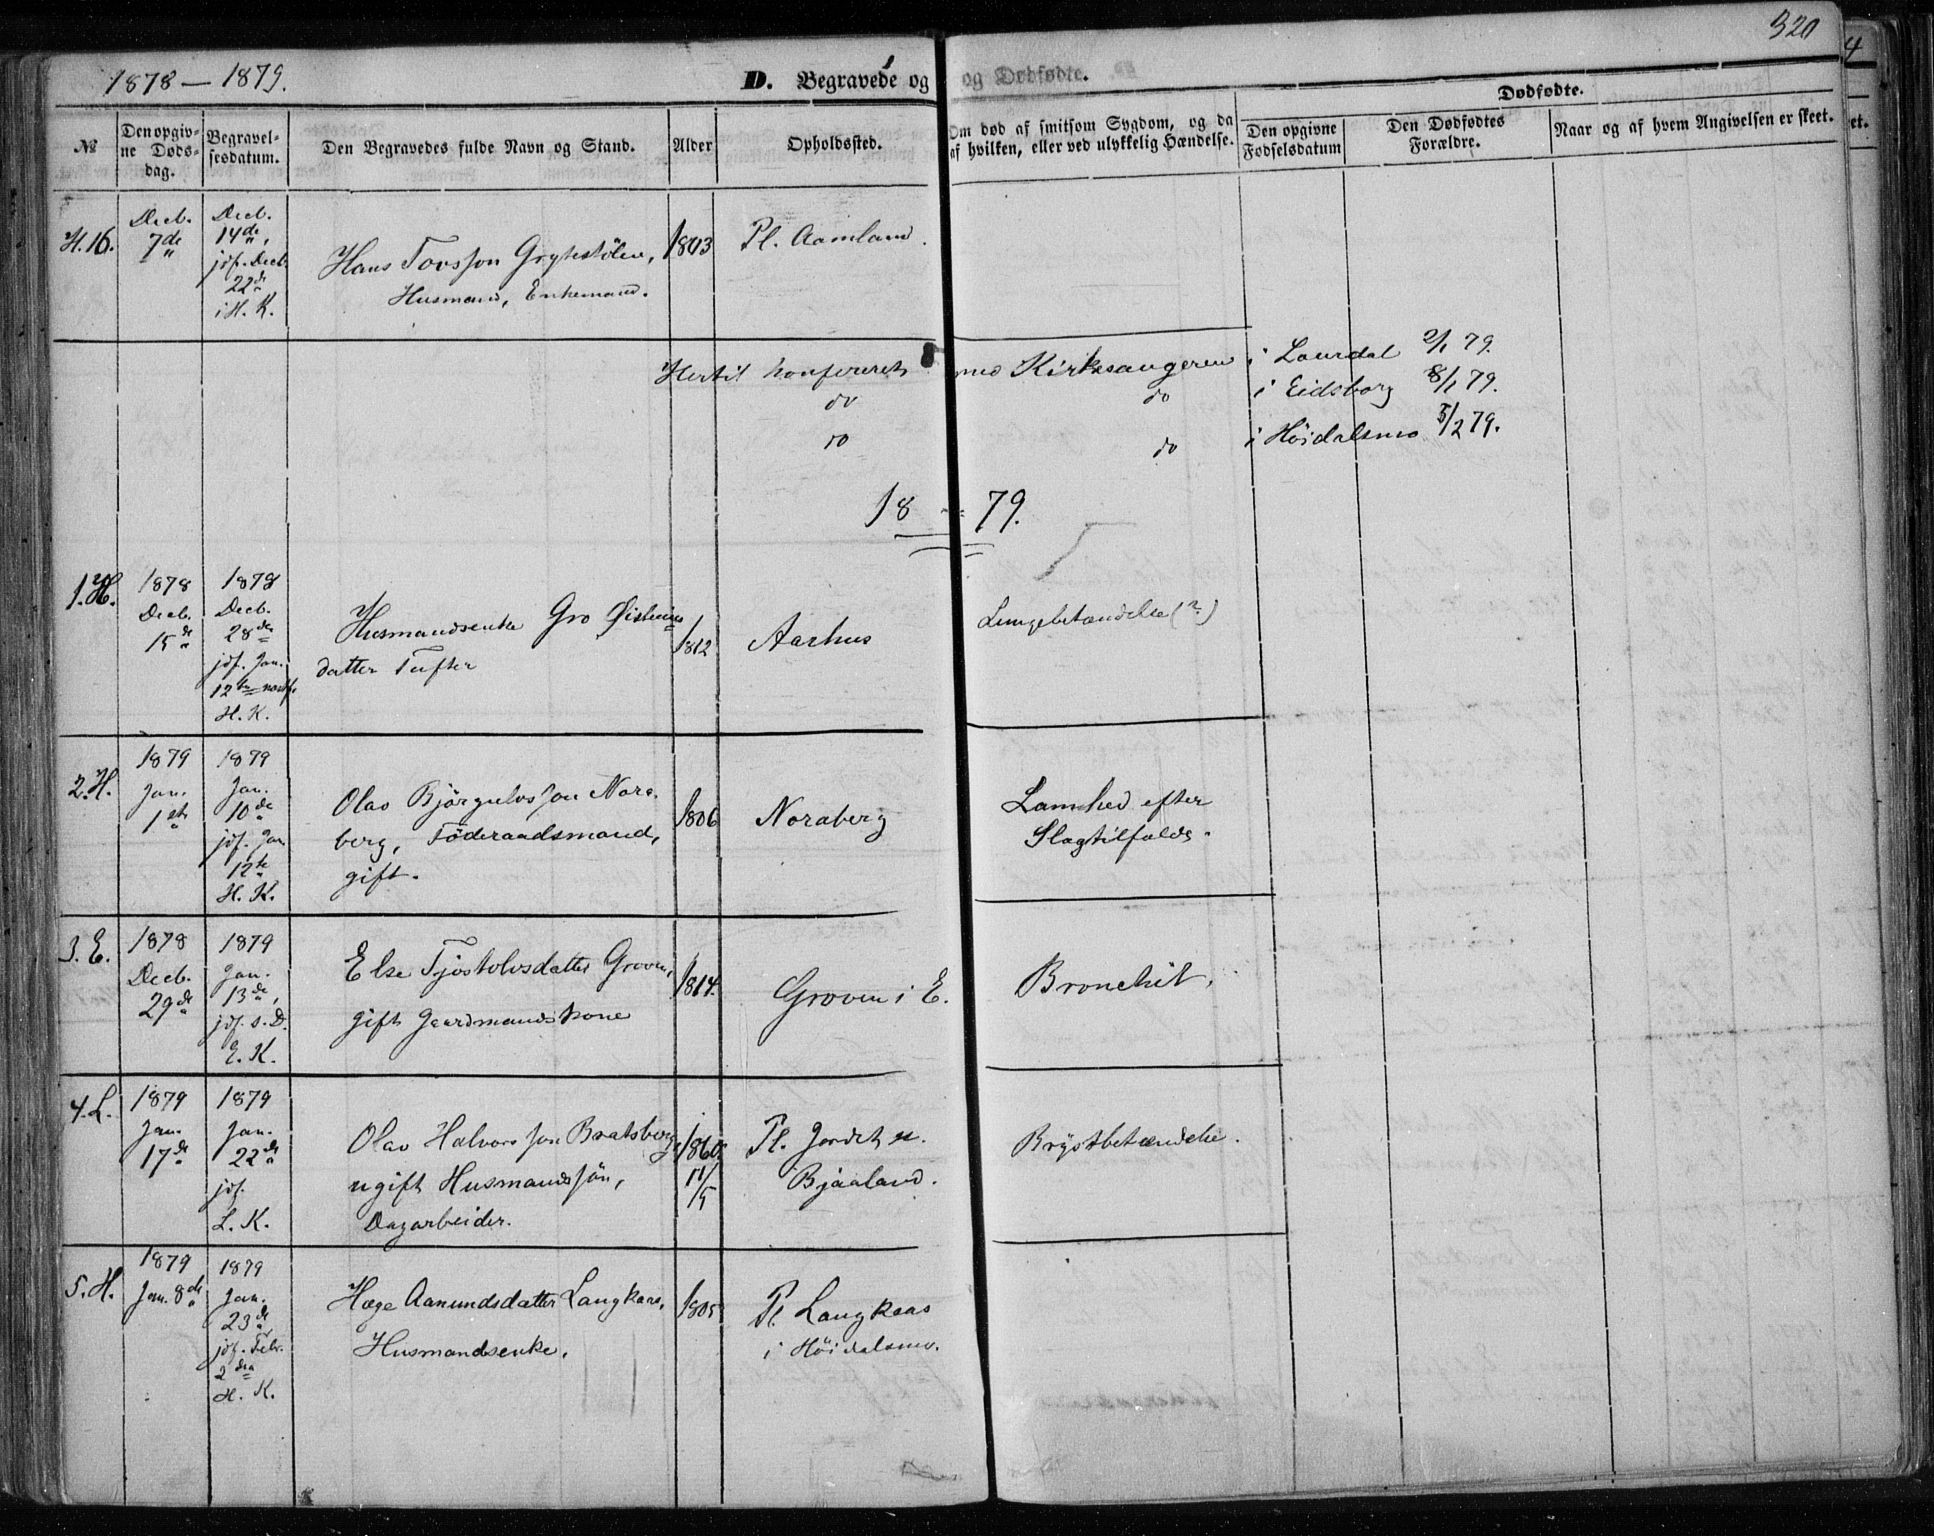 320
1878 — 1879.
D. Begravede og
og Dødfødte.
Dødfødte.
№
Den opgiv-
ne Døds-
dag.
Begravel-
sesdatum.
Den Begravedes fulde Navn og Stand.
Alder
Opholdssted.
Om død af smitsom Sygdom, og da
af hvilken, eller ved ulykkelig Hændelse.
Den opgivne
Fødselsdatum
Den Dødfødtes
Forældre.
Naar og af hvem Angivelsen er skeet.
H. 16.
Decb.
7de
Decb.
14de,
jdf. Decb.
22de
i H. K.
Hans Tovsson Grytestölen,
Husmand, Enkemand.
1803
Pl. Aamland.
Hertil konfereret med Kirkesangeren i Laurdal 2/1 79.
do do i Eidsborg 8/1 79.
do do i Höidalsmo 5/2 79.
18 79.
1. H.
1878
Decb.
15de
1878
Decb.
28de
jdf. Jan.
12te
H. K.
Husmandsenke Gro Øisteins
datter Tufter
1812
Aarhus
Lungebetændelse (?)
2. H.
1879
Jan.
1ste
1879
Jan.
10de
jdf. Jan.
12te
H. K.
Olav Björgulvsson Nora-
berg, Föderaadsmand,
gift.
1806
Noraberg
Lamhed efter
Slagtilfælde.
3. E.
1878
Decb.
29de
1879
Jan.
13de,
jdf. s. D.
E. K.
Else Tjöstolvsdatter Groven,
gift Gaardmandskone
1814.
Groven i E.
Bronchit.
4. L.
1879
Jan.
17de
1879
Jan.
22de
jdf.
L. K.
Olav Halvorsson Bratsberg,
ugift Husmandssön,
Dagarbeider.
1860
11/5
Pl. Jordet u.
Bjaaland.
Brystbetændelse.
5. H.
1879
Jan. 8de
1879
Jan.
23de
jdf. Febr.
2den
H. K.
Hæge Aanundsdatter Langkaas,
Husmandsenke.
1805
Pl. Langkaas
i Höidalsmo.